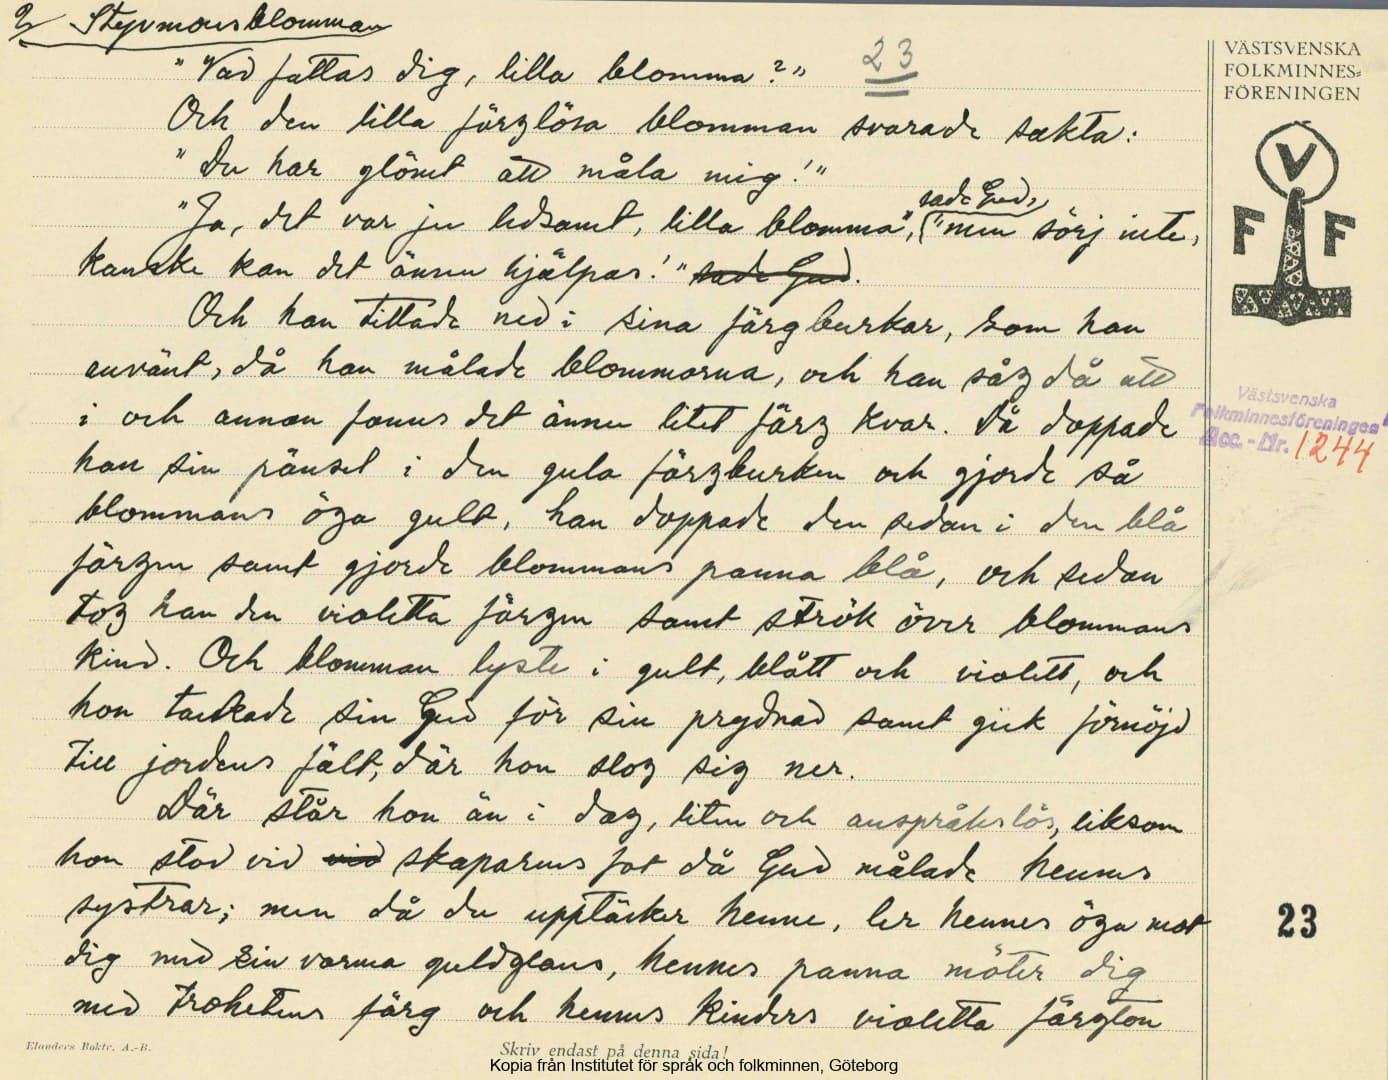 2/ Styvmorsblomman
"Vad fattas dig, lilla blomma?"
23
Och den lilla färglösa blomman svarade sakta:
"Du har glömt att måla mig!"
"Ja, det var ju ledsamt, lilla blomma", sade Gud, "men sörj inte,
kanske kan det ännu hjälpas!" sade Gud.
Och han tittade ned i sina färgburkar, som han
använt, då han målade blommorna, och han såg då att
i och annan fanns det ännu litet färg kvar. Då doppade
han sin pänsel i den gula färgburken och gjorde så
blommans öga gult, han doppade den sedan i den blå
färgen samt gjorde blommans panna blå, och sedan
tog han den violetta färgen samt strök över blommans
kind. Och blomman lyste i gult, blått och violett, och
hon tackade sin Gud för sin prydnad samt gick förnöjd
till jordens fält, där hon slog sig ner.
Där står hon än i dag, liten och anspråkslös, liksom
hon stod vid vid skaparens fot då Gud målade hennes
systrar; men då du upptäcker henne, ler hennes öga mot
dig med sin varma guldglans, hennes panna möter dig
med trohetens färg och hennes kinders violetta färgton
VÄSTSVENSKA
FOLKMINNES-
FÖRENINGEN
V
F F
Västsvenska
Folkminnesföreningen
Acc.-Nr. 1244
23
Elanders Boktr. A.-B.
Skriv endast på denna sida!
Kopia från Institutet för språk och folkminnen, Göteborg